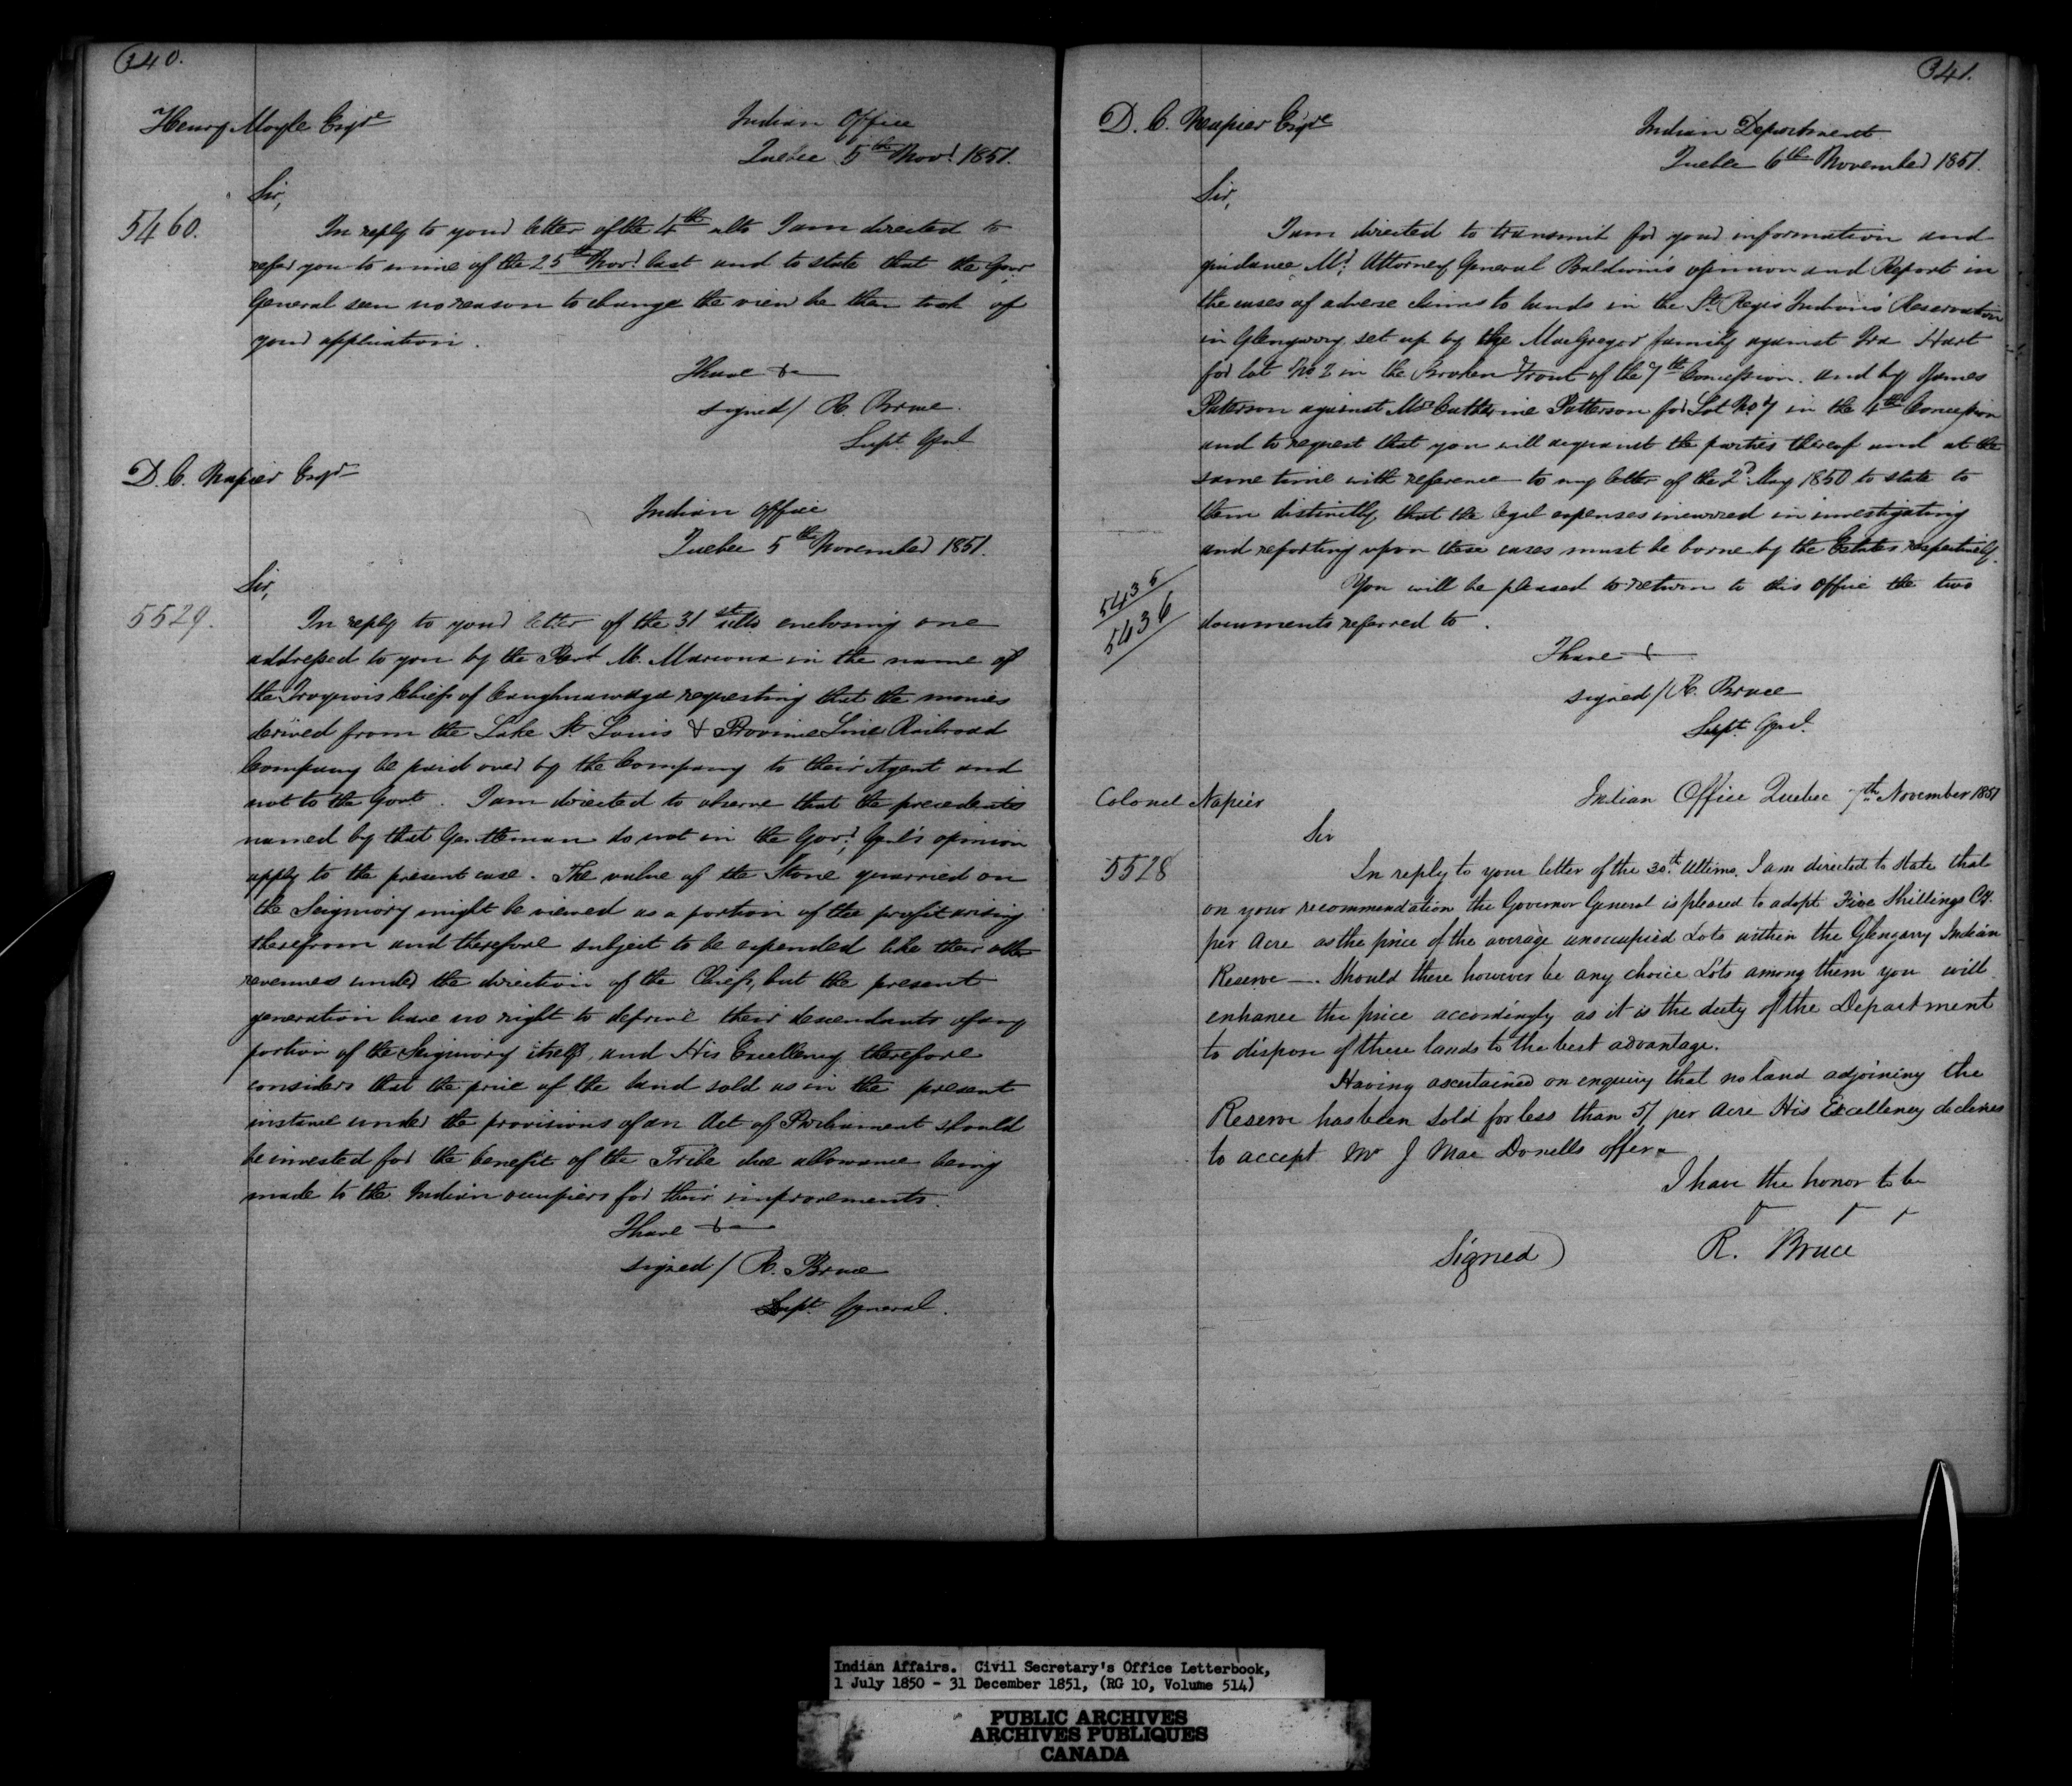 340.
Henry Moyle Esqre
Indian Office
Quebec 5th Novr 1851.
Sir,
5460.
In reply to your letter of the 4th ulto I am directed to
refer you to mine of the 25th Novr last and to state that the Govr
General sees no reason to change the view he then took of
your application.
I have &c
signed / R. Bruce.
Supt. Genl
D. C. Napier Esqr
Indian Office
Quebec 5th November 1851.
Sir,
5529.
In reply to your letter of the 31st ulto enclosing one
addressed to you by the Revd M. Marcoux in the name of
the Iroquois Chiefs of Caughnawaga requesting that the monies
derived from the Lake St. Louis & Province Line Railroad
Company be paid over by the Company to their Agent and
not to the Govt. I am directed to observe that the precedents
named by that Gentleman do not in the Govr Genl's opinion
apply to the present case. The value of the Stone quarried on
the Seigniory might be viewed as a portion of the profit arising
therefrom and therefore subject to be expended like their other
revenues under the direction of the Chiefs, but the present
generation have no right to deprive their descendants of any
portion of the Seigniory itself, and His Excellency therefore
considers that the price of the land sold as in the present
instance under the provisions of an Act of Parliament should
be invested for the benefit of the Tribe due allowance being
made to the Indian occupiers for their improvements.
I have &c
signed / R. Bruce
Supt. General.
341.
D. C. Napier Esqre
Indian Department
Quebec 6th November 1851.
Sir,
I am directed to transmit for your information and
guidance Mr Attorney General Baldwin's opinion and Report in
the cases of adverse claims to lands in the St. Regis Indians' Reservation
in Glengarry set up by the MacGregor family against Ira Hart
for lot No 2 in the Broken Front of the 7th Concession. and by James
Paterson against Mrs Catherine Patterson for Lot No 7 in the 4th Concession
and to request that you will acquaint the parties thereof and at the
same time with reference to my letter of the 2d May 1850 to state to
them distinctly that the legal expenses incurred in investigating
and reporting upon these cases must be borne by the Estates respectively.
5435
5436
You will be pleased to return to this Office the two
documents referred to.
I have &
signed / R. Bruce
Supt. Genl.
Colonel Napier
Indian Office Quebec 7th November 1851
Sir
5528
In reply to your letter of the 30th Ultimo. I am directed to state that
on your recommendation the Governor General is pleased to adopt Five Shillings Cy.
per Acre as the price of the average unoccupied Lots within the Glengarry Indian
Reserve —. Should there however be any choice Lots among them you will
enhance the price accordingly as it is the duty of the Department
to dispose of these lands to the best advantage.
Having ascertained on enquiry that no land adjoining the
Reserve has been sold for less than 5/ per Acre His Excellency declines
to accept Mr J Mac Donells offer
I have the honor to be
Signed) R. Bruce
Indian Affairs. Civil Secretary's Office Letterbook,
1 July 1850 - 31 December 1851, (RG 10, Volume 514)
PUBLIC ARCHIVES
ARCHIVES PUBLIQUES
CANADA